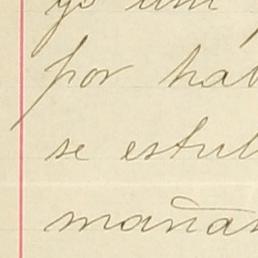 por hab
se estub
mañan